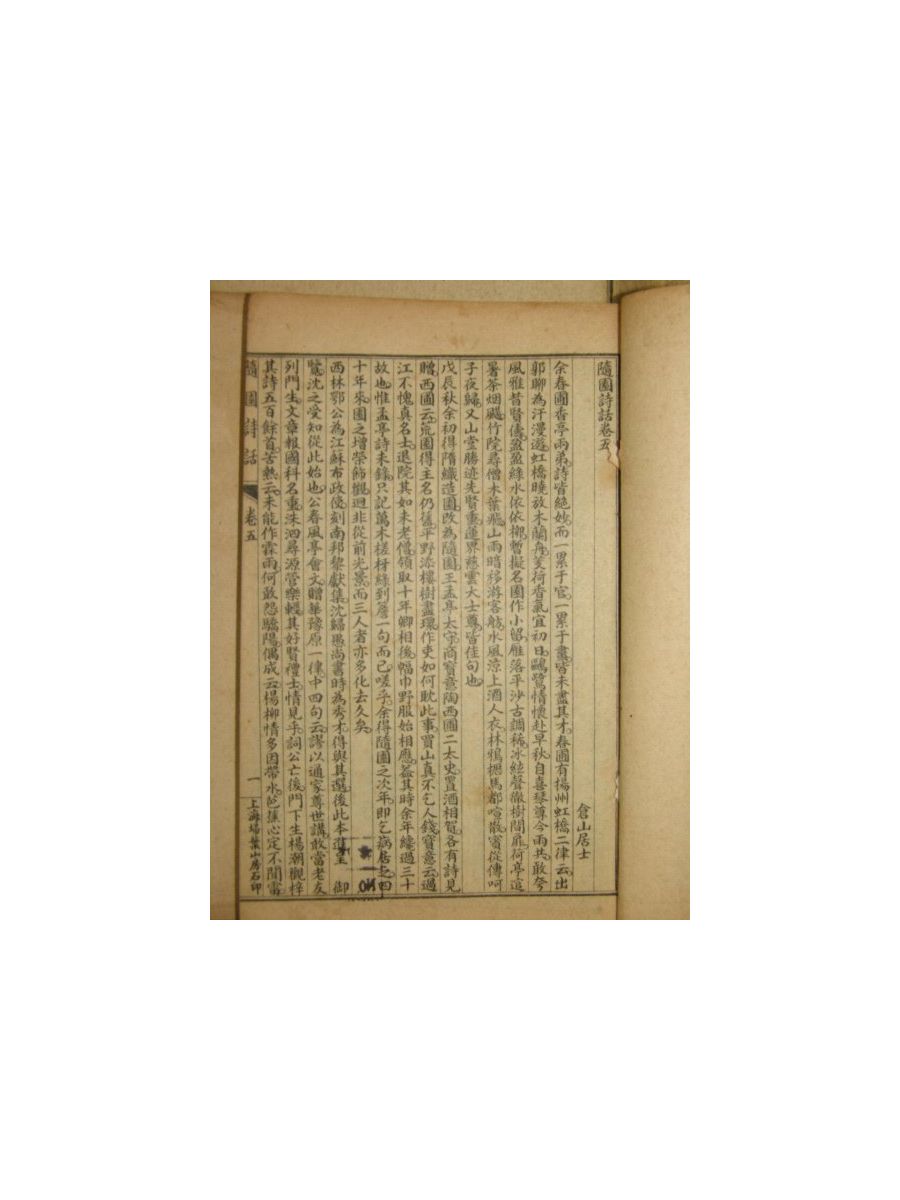 隨園詩話卷五
倉山居士
余春圃香亭兩弟詩皆絕妙而一累于官一累于畫皆未盡其才春圃有揚州虹橋二律云出
郭聊為汗漫遊虹橋曉放木蘭舟芰荷香氣宜初日鷗鷺情懷赴早秋自喜琴尊今雨共敢夸
風雅昔賢儔盈盈綠水依依榭暫擬名園作小留雁落平沙古調稀冰絃聲徹樹間扉荷亭逭
暑茶烟颺竹院尋僧木葉飛山雨暗移游客舫水風涼上酒人衣林鴉櫪馬都喧散賓從傳呵
子夜歸又山堂勝迹先賢重蓮界慈雲大士尊皆佳句也
戊辰秋余初得隋織造園改為隨園王孟亭太守商寶意陶西圃二太史置酒相賀各有詩見
贈西圃云荒園得主名仍舊平野添樓樹盡環作吏如何耽此事買山真不乞人錢寶意云過
江不愧真名士退院其如未老僧領取十年卿相後幅巾野服始相應蓋其時余年纔過三十
故也惟孟亭詩未錄只記萬木槎枒綠到簷一句而已嗟乎余得隨園之次年即乞病居之四
十年來園之增榮飾觀迥非從前光景而三人者亦多化去久矣
西林鄂公為江蘇布政使刻南邦黎獻集沈歸愚尚書時為秀才得與其選後此本進呈 御
覽沈之受知從此始也公春風亭會文贈華豫原一律中四句云謬以通家尊世講敢當老友
列門生文章報國科名重洙泗尋源管樂輕其好賢禮士情見乎詞公亡後門下生楊潮觀梓
其詩五百餘首苦熱云未能作霖雨何敢怨驕陽偶成云楊柳情多因帶水芭蕉心定不聞雷
隨園詩話
卷五
一
上海埽葉山房石印